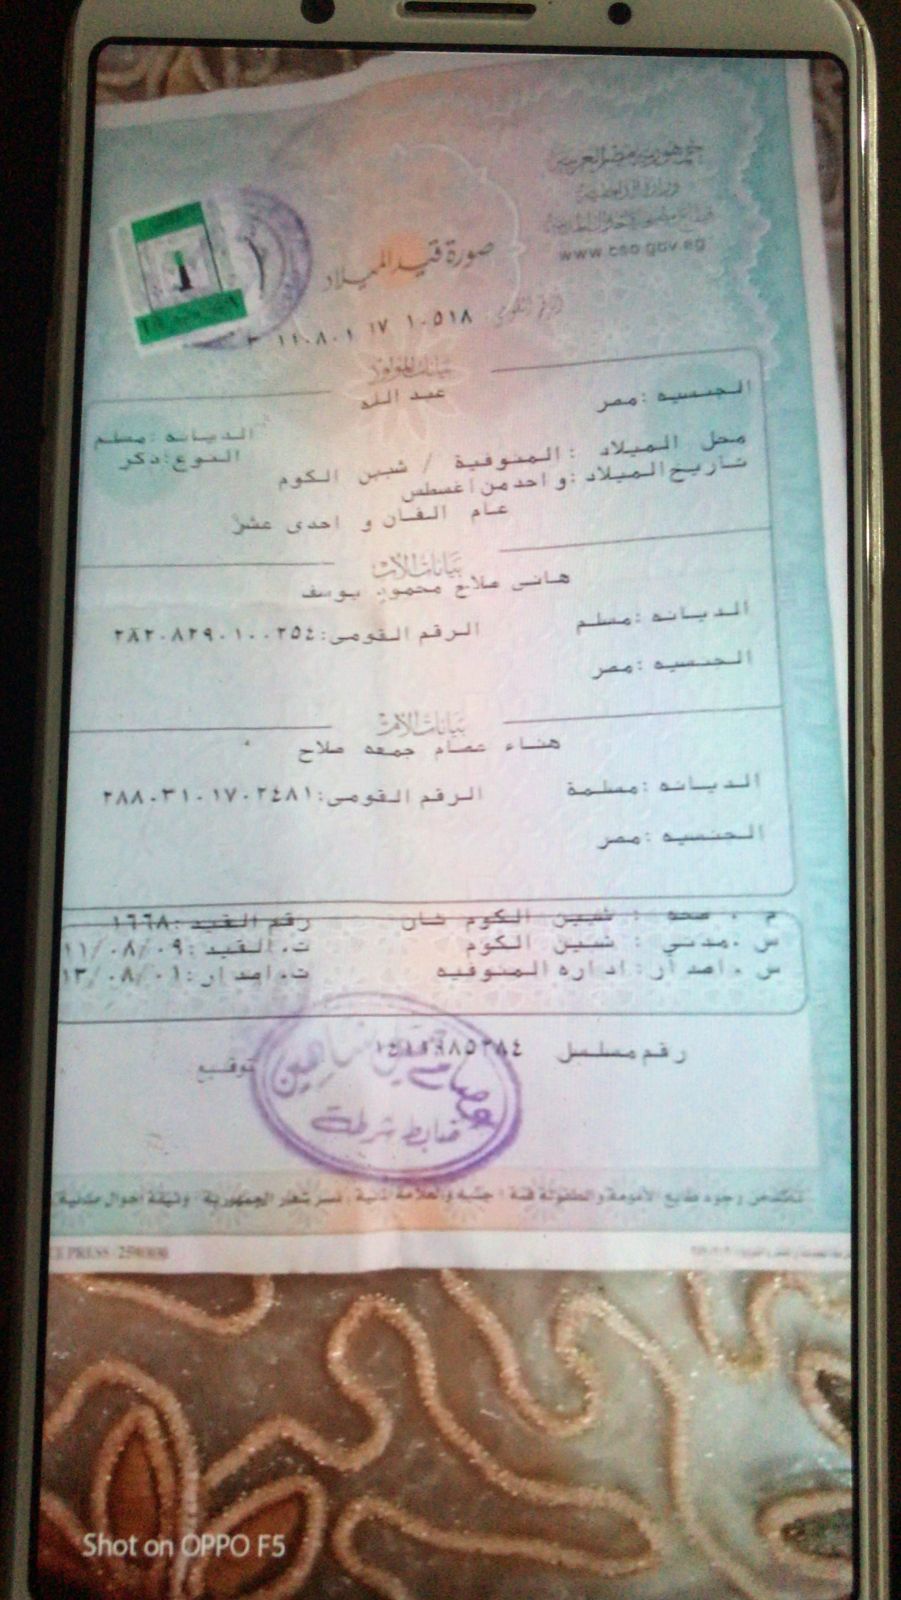 جمهورية مصر العربية
وزارة الداخلية
www.cso.gov.eg
صورة قيد الميلاد
الرقم القومى ١٧ ١٠٥١٨
بيانات المولود
عبد الله
الجنسيه :مصر
الديانه :مسلم
النوع :ذكر
محل الميلاد : المنوفية / شبين الكوم
تاريخ الميلاد :واحد من اغسطس
عام الفان و احدى عشر
بيانات الأب
هانى صلاح محمود يوسف
الديانه :مسلم الرقم القومى:٢٨٢٠٨٢٩٠١٠٠٢٥٤
الجنسيه :مصر
بيانات الأم
هناء عصام جمعه صلاح
الديانه :مسلمة الرقم القومى:٢٨٨٠٣١٠١٧٠٢٤٨١
الجنسيه :مصر
م . صحه : شبين الكوم ثان رقم القيد :١٦٦٨
س .مدنى : شبين الكوم ت.القيد :١١/٠٨/٠٩
س .اصدار: اداره المنوفيه ت.اصدار :١٣/٠٨/٠١
رقم مسلسل
توقيع
عصام شاهين
ضابط شرطة
وجود طابع الأمومة والطفولة فئة جنيه والعلامة المائية نسر شعار الجمهورية وثيقة أحوال مدنية
Shot on OPPO F5